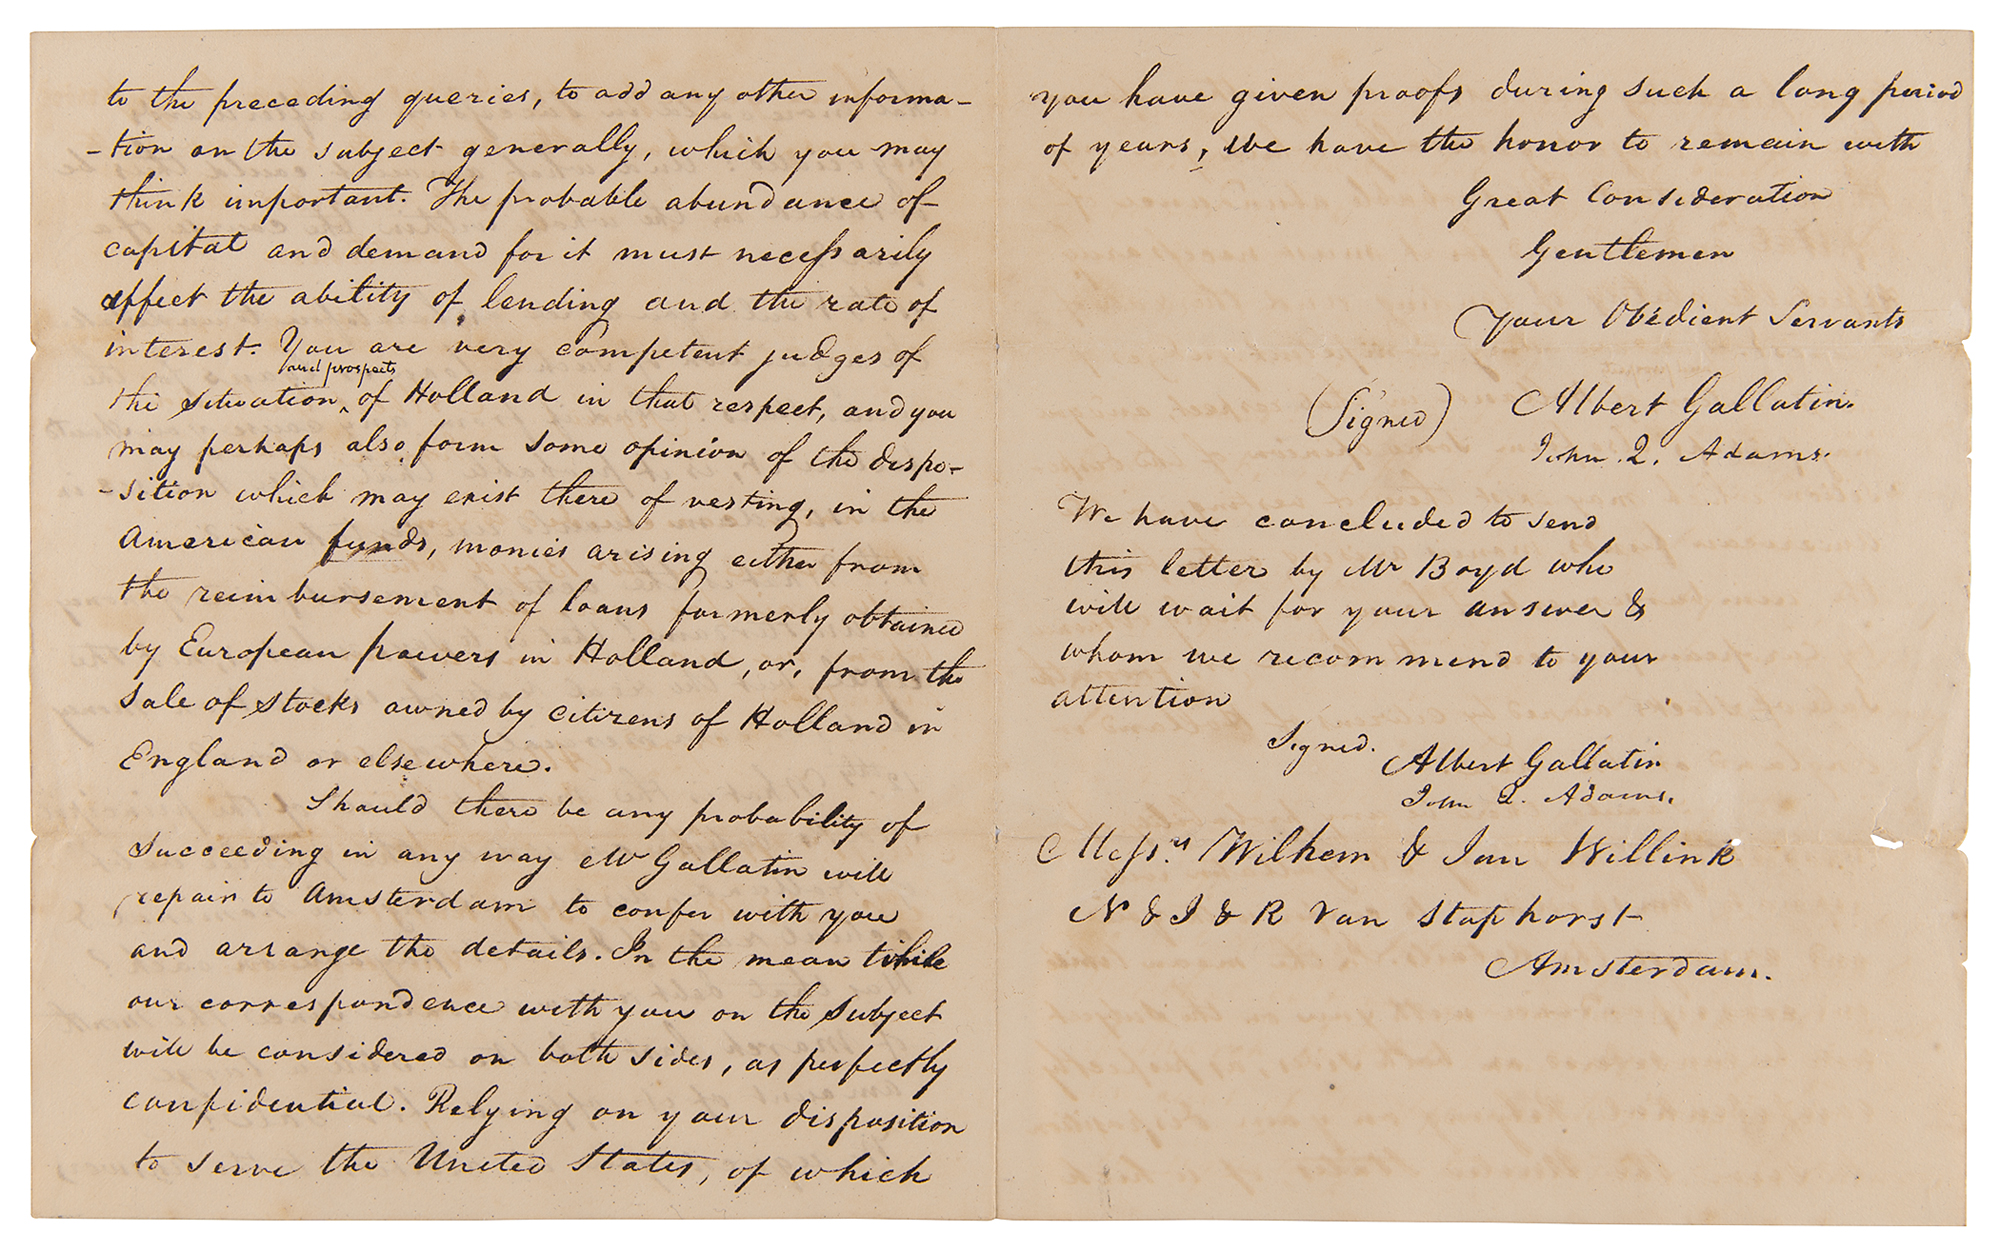 to the preceding queries, to add any other informa-
-tion on the subject generally, which you may
think important. The probable abundance of
capital and demand for it must necessarily
affect the ability of lending and the rate of
interest. You are very competent judges of
and prospects
the situation ^ of Holland in that respect, and you
may perhaps also form some opinion of the dispo-
-sition which may exist there of vesting, in the
American funds, monies arising either from
the reimbursement of loans formerly obtained
by European powers in Holland, or, from the
sale of stocks owned by citizens of Holland in
England or elsewhere.
Should there be any probability of
succeeding in any way Mr Gallatin will
repair to Amsterdam to confer with you
and arrange the details. In the mean while
our correspondence with you on the subject
will be considered on both sides, as perfectly
confidential. Relying on your disposition
to serve the United States, of which
you have given proofs during such a long period
of years, we have the honor to remain with
Great Consideration
Gentlemen
Your Obedient Servants
(Signed) Albert Gallatin.
John. Q. Adams.
We have concluded to send
this letter by Mr Boyd who
will wait for your answer &
whom we recommend to your
attention
Signed. Albert Gallatin
John Q. Adams.
Messrs Wilhem & Jan Willink
N & J & R Van Staphorst
Amsterdam.